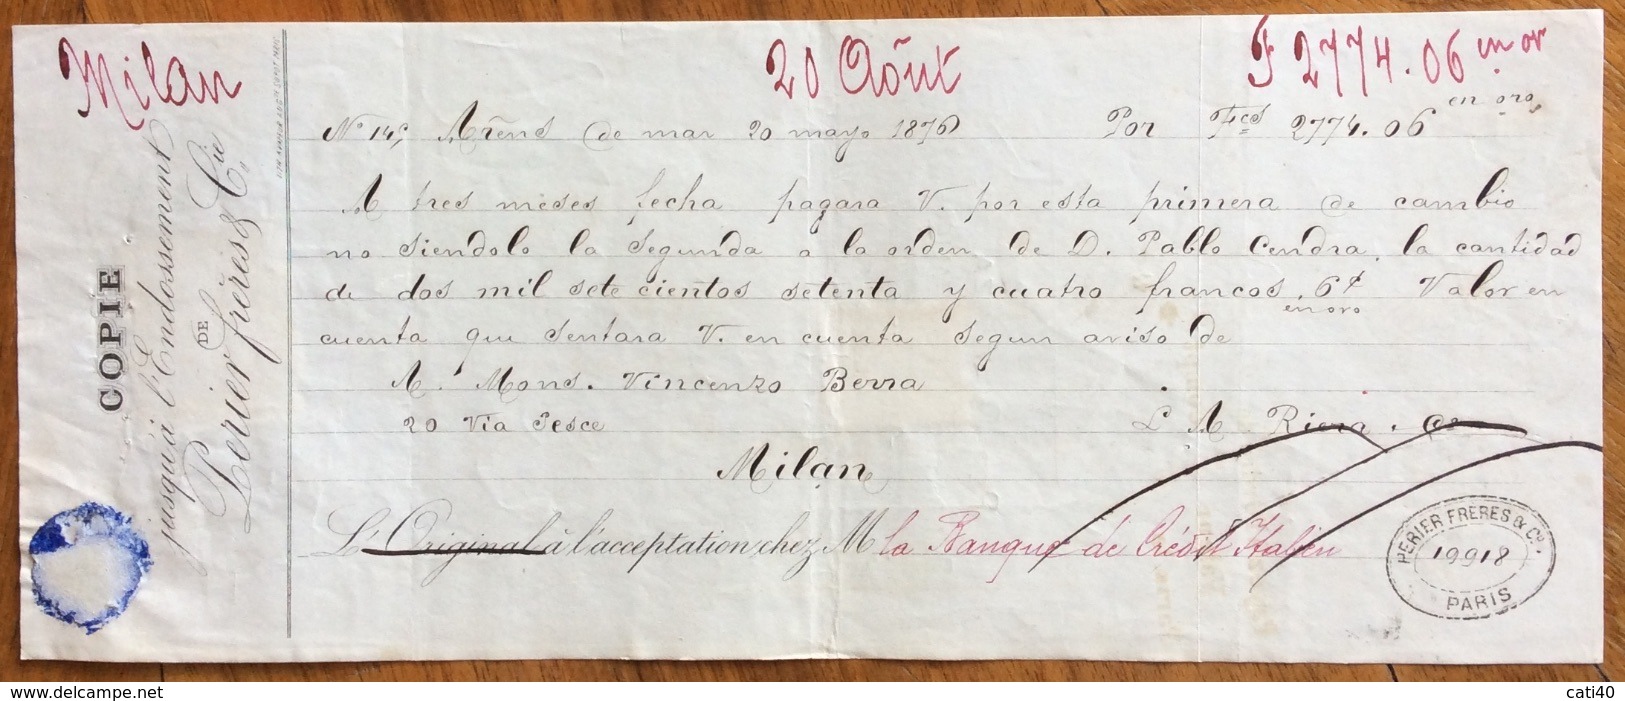 Milan
20 Août
F 2774.06 en or
COPIE
jusqu'à l'Endossement
DE
Perier frères & Cie
Areñs de mar 20 mayo 1876 Por Fcs 2774.06 en oro
A tres meses fecha pagara V. por esta primera de cambio
no siendolo la segunda a la orden de D. Pablo Cendra, la cantidad
de dos mil sete cientos setenta y cuatro francos . 6 ct Valor en
en oro
cuenta que sentara V. en cuenta segun aviso de
A. Mons. Vincenzo Berra
20 Via Pesce
A. Riera
Milan
L' Original à l'acceptation chez M la Banque de Crédit Italien
PERIER FRERES & Co.
19918
PARIS
cati40